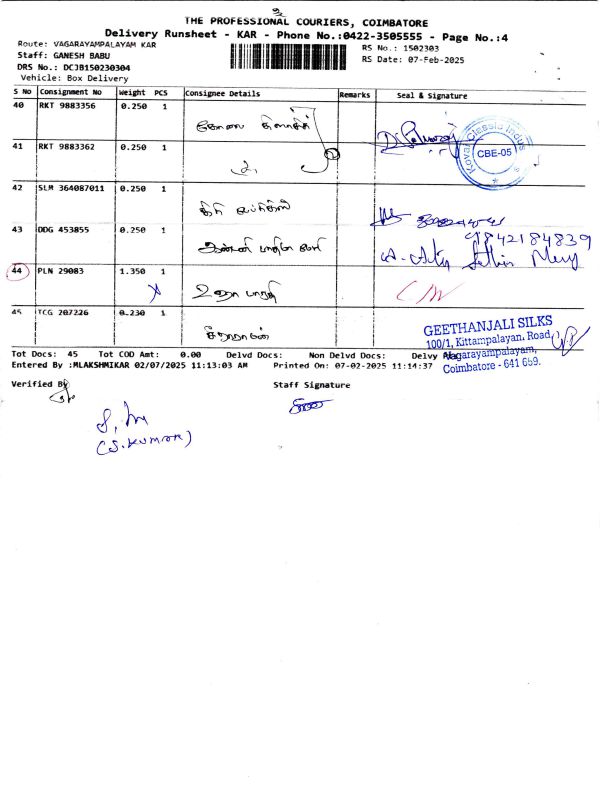 THE PROFESSIONAL COURIERS, COIMBATORE
Delivery Runsheet - KAR - Phone No.:0422-3505555 - Page No.:4
Route: VAGARAYAMPALAYAM KAR
RS No.: 1502303
Staff: GANESH BABU
RS Date: 07-Feb-2025
DRS No.: DCJB150230304
Vehicle: Box Delivery
S No Consignment No Weight PCS Consignee Details Remarks Seal & Signature
40 RKT 9883356 0.250 1
கோவை கிளாசிக்
41 RKT 9883362 0.250 1
Koval Classic Indus
CBE-05
42 SLM 364087011 0.250 1
43 DDG 453855 0.250 1
9842184839
அன்னை பாத்திமா
44 PLN 29083 1.350 1
உமா பாரதி
45 TCG 207226 0.230 1
GEETHANJALI SILKS
100/1, Kittampalayan. Road,
Vagarayampalayam,
Coimbatore - 641 659.
Tot Docs: 45 Tot COD Amt: 0.00 Delvd Docs: Non Delvd Docs: Delvy
Entered By :MLAKSHMIKAR 02/07/2025 11:13:03 AM Printed On: 07-02-2025 11:14:37
Verified By
Staff Signature
(S.KUMAR)